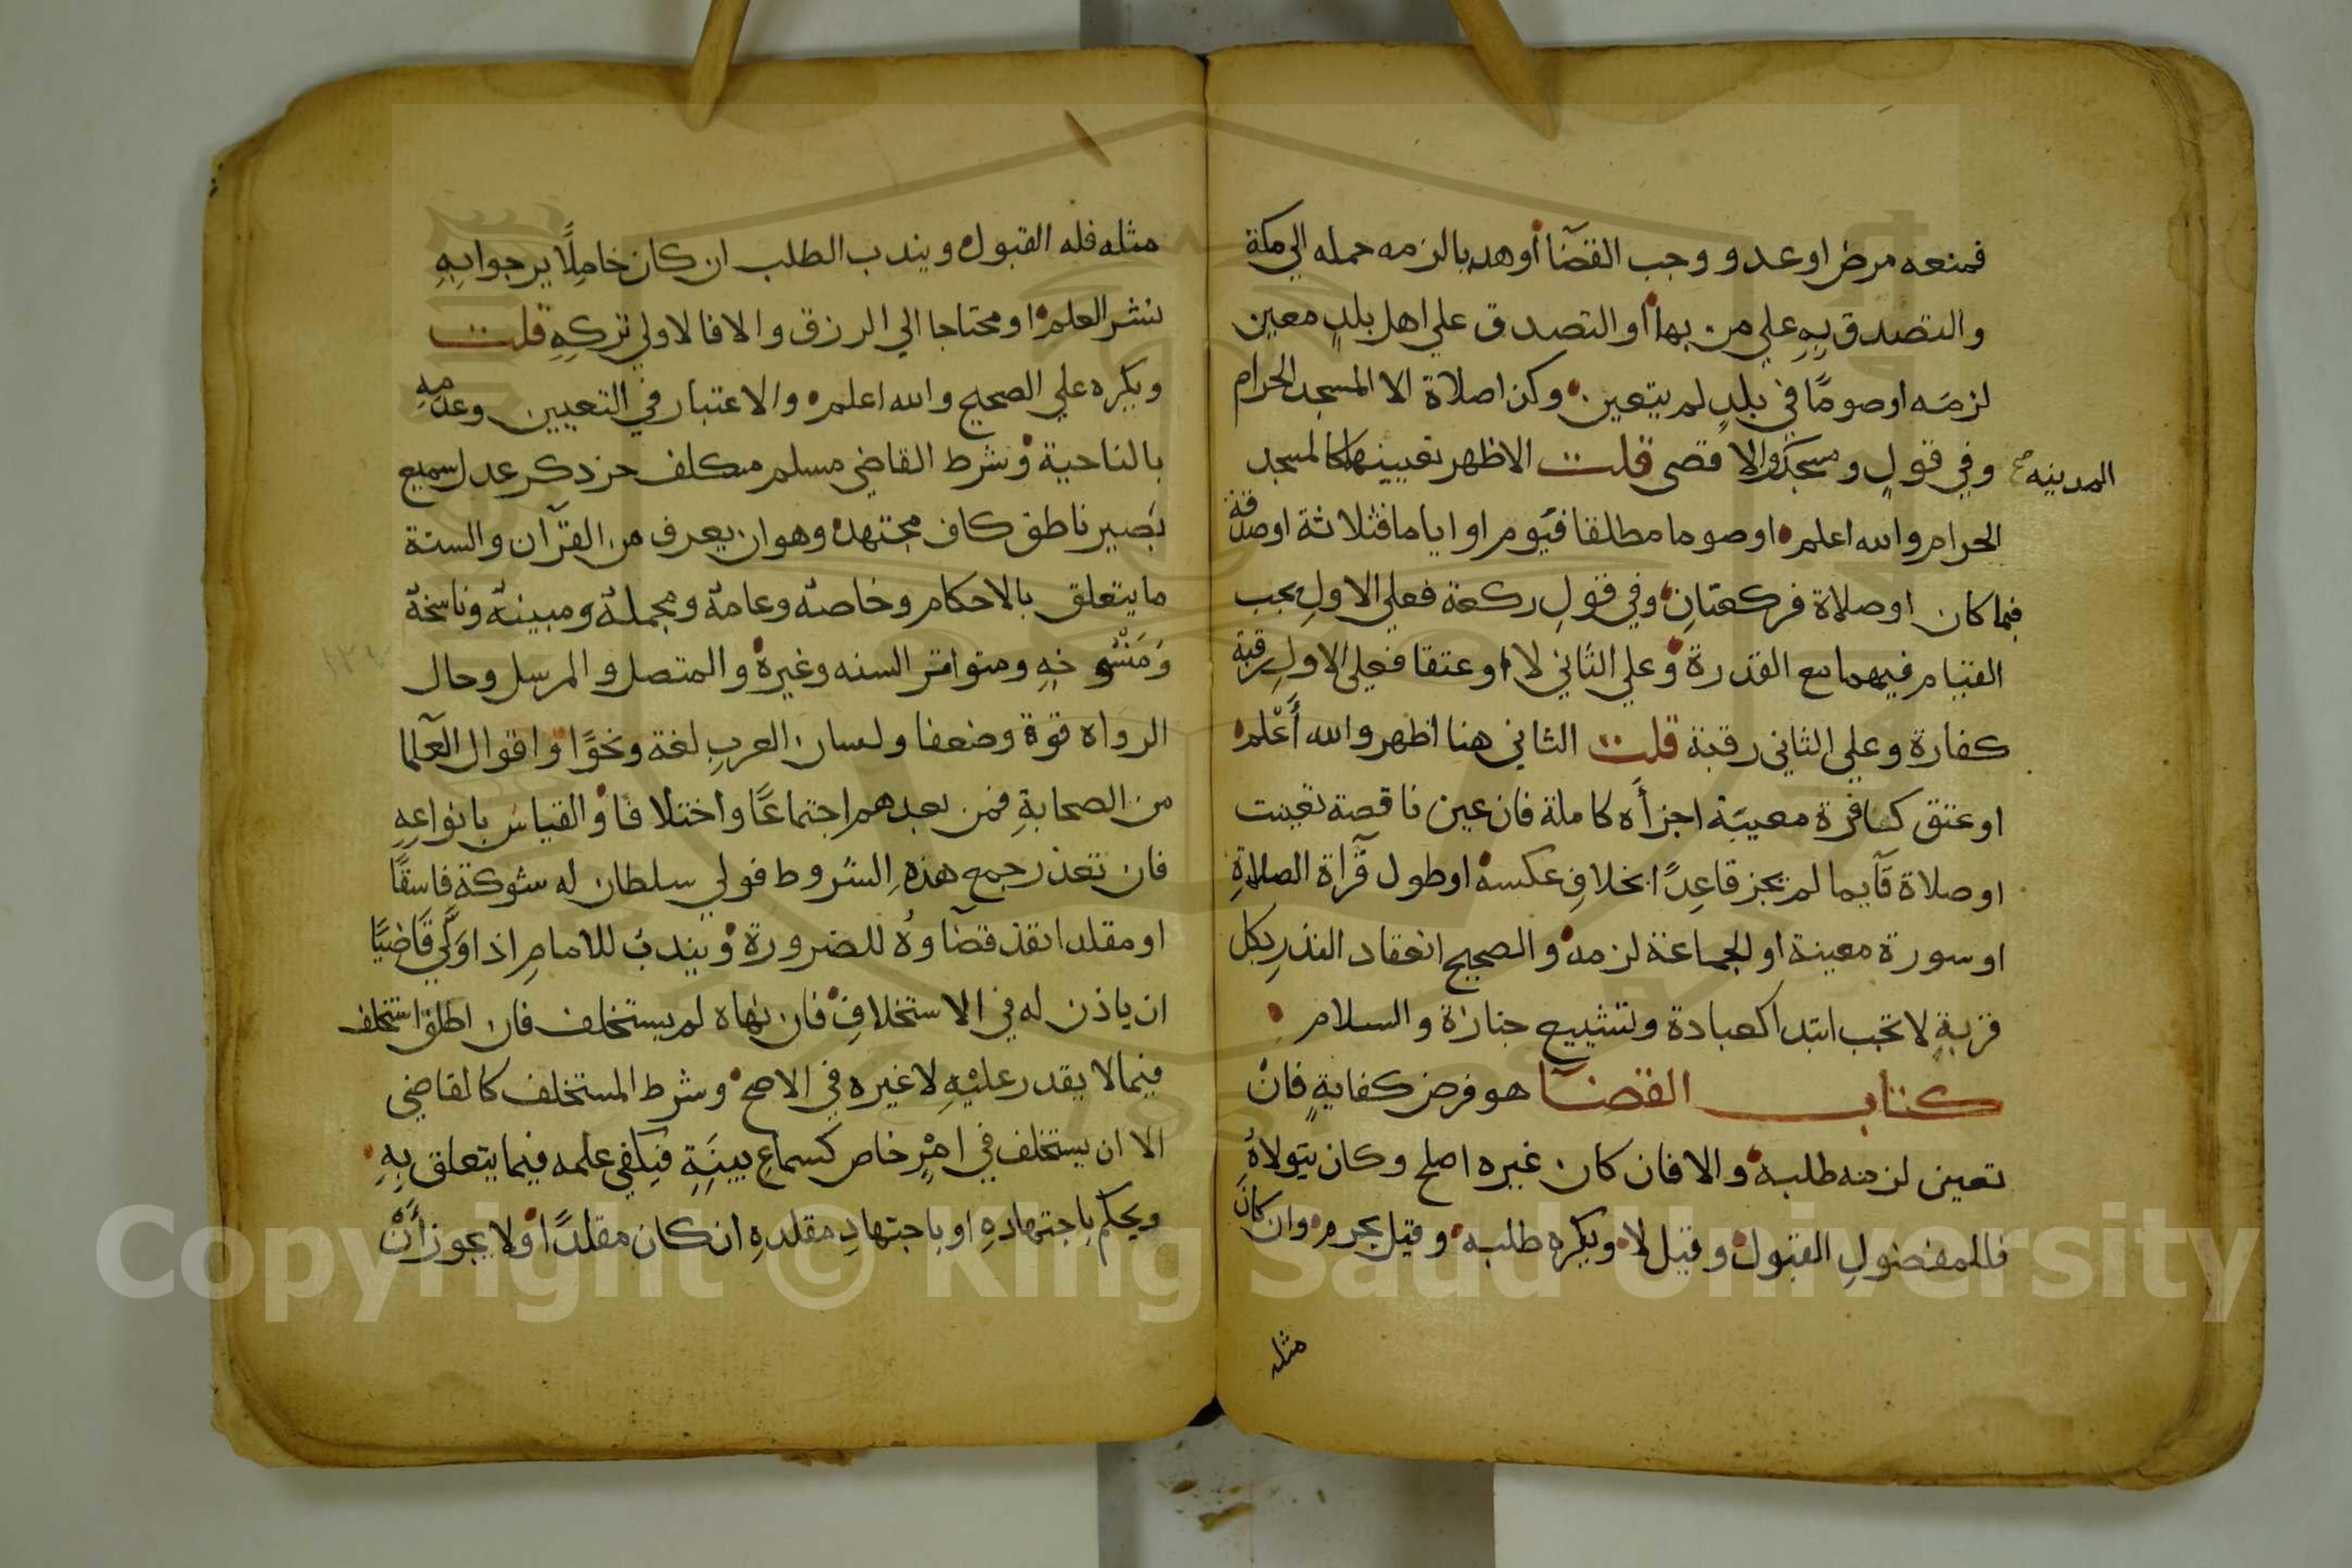 فمنعه مرض او عدو وجب القضآ أو هديا لزمه حمله الي مكة
والتصدق بِهِ علي من بها أو التصدق علي اهل بلدٍ معين
لزمَه او صومًا في بلدٍ لم يتعين وكذا صلاة الا المسجد الحرام
وفي قولٍ ومسجد المدينه والاقصى قلت الاظهر تعيينهما كالمسجد
الحرام والله اعلم او صوما مطلقا فيَوم او اياما فثلاثة او صدقة
فبما كان او صلاة فركعتانِ وفي قولٍ ركعة فعلي الاولِ يجب
القيام فيهما مع القدرة وعلي الثاني لا او عتقا فعلي الاولِ رقبة
كفارة وعلي الثاني رقبة قلت الثاني هنا اظهر والله أَعْلم
او عتق كافرة معيبَة اجزأَه كاملة فان عين ناقصة تعينت
او صلاة قآيما لم يجز قاعِدًا بخلافِ عكسه او طول قرآة الصلاةِ
او سورة معينة او الجماعة لزمه والصحيح انعقاد النذرِ بكل
قربةٍ لا تجب ابتدا كعيادة وتشييع جنازة والسلام
كتاب القضآ هو فرض كفايةٍ فانْ
تعين لزمه طلبه والا فان كان غيره اصلح وكان يتولاهُ
فللمفضولِ القبول وقيل لا ويكره طلبه وقيل يحرم وان كانَ
مثله
مثله فله القبول ويندب الطلب ان كان خامِلًا يرجوا بِهِ
نشر العلم او محتاجا الي الرزق والا فالاولي تركِهِ قلت
ويكره علي الصحيح والله اعلم والاعتبار في التعيين وعدمِهِ
بالناحية وشرط القاضي مسلم مكلف حر ذكر عدل سميع
بَصير ناطق كاف مجتهد وهو ان يعرف من القرآن والسنة
ما يتعلق بالاحكام وخاصه وعامه ومجمله ومبينه وناسخه
وَمَنْسُوخِهِ ومتواتر السنه وغيره والمتصل والمرسل وحال
الرواه قوة وضعفا ولسان العربِ لغة ونحوًا واقوال العلما
من الصحابةِ فمن بعدهم اجتماعًا واختلافا والقياس بانواعِهِ
فان تعذر جمع هذهِ الشروط فولي سلطان له شوكة فاسقًا
او مقلدا نفذ قضآوهُ للضرورة ويندبُ للامامِ اذا ولَّي قَاضيًا
ان ياذن له في الاستخلافِ فان نهاه لم يستخلف فان اطلق استخلف
فيما لا يقدر عليْهِ لا غيره في الاصح وشرط المستخلف كالقاضي
الا ان يستخلف في امْرٍ خاص كسماعِ بيينَةٍ فيَكفي علمه فيما يتعلق بِهِ
ويحكم باجتهادهِ او باجتهادِ مقلدهِ ان كان مقلدًا ولا يجوز أَنْ
Copyright © King Saud University